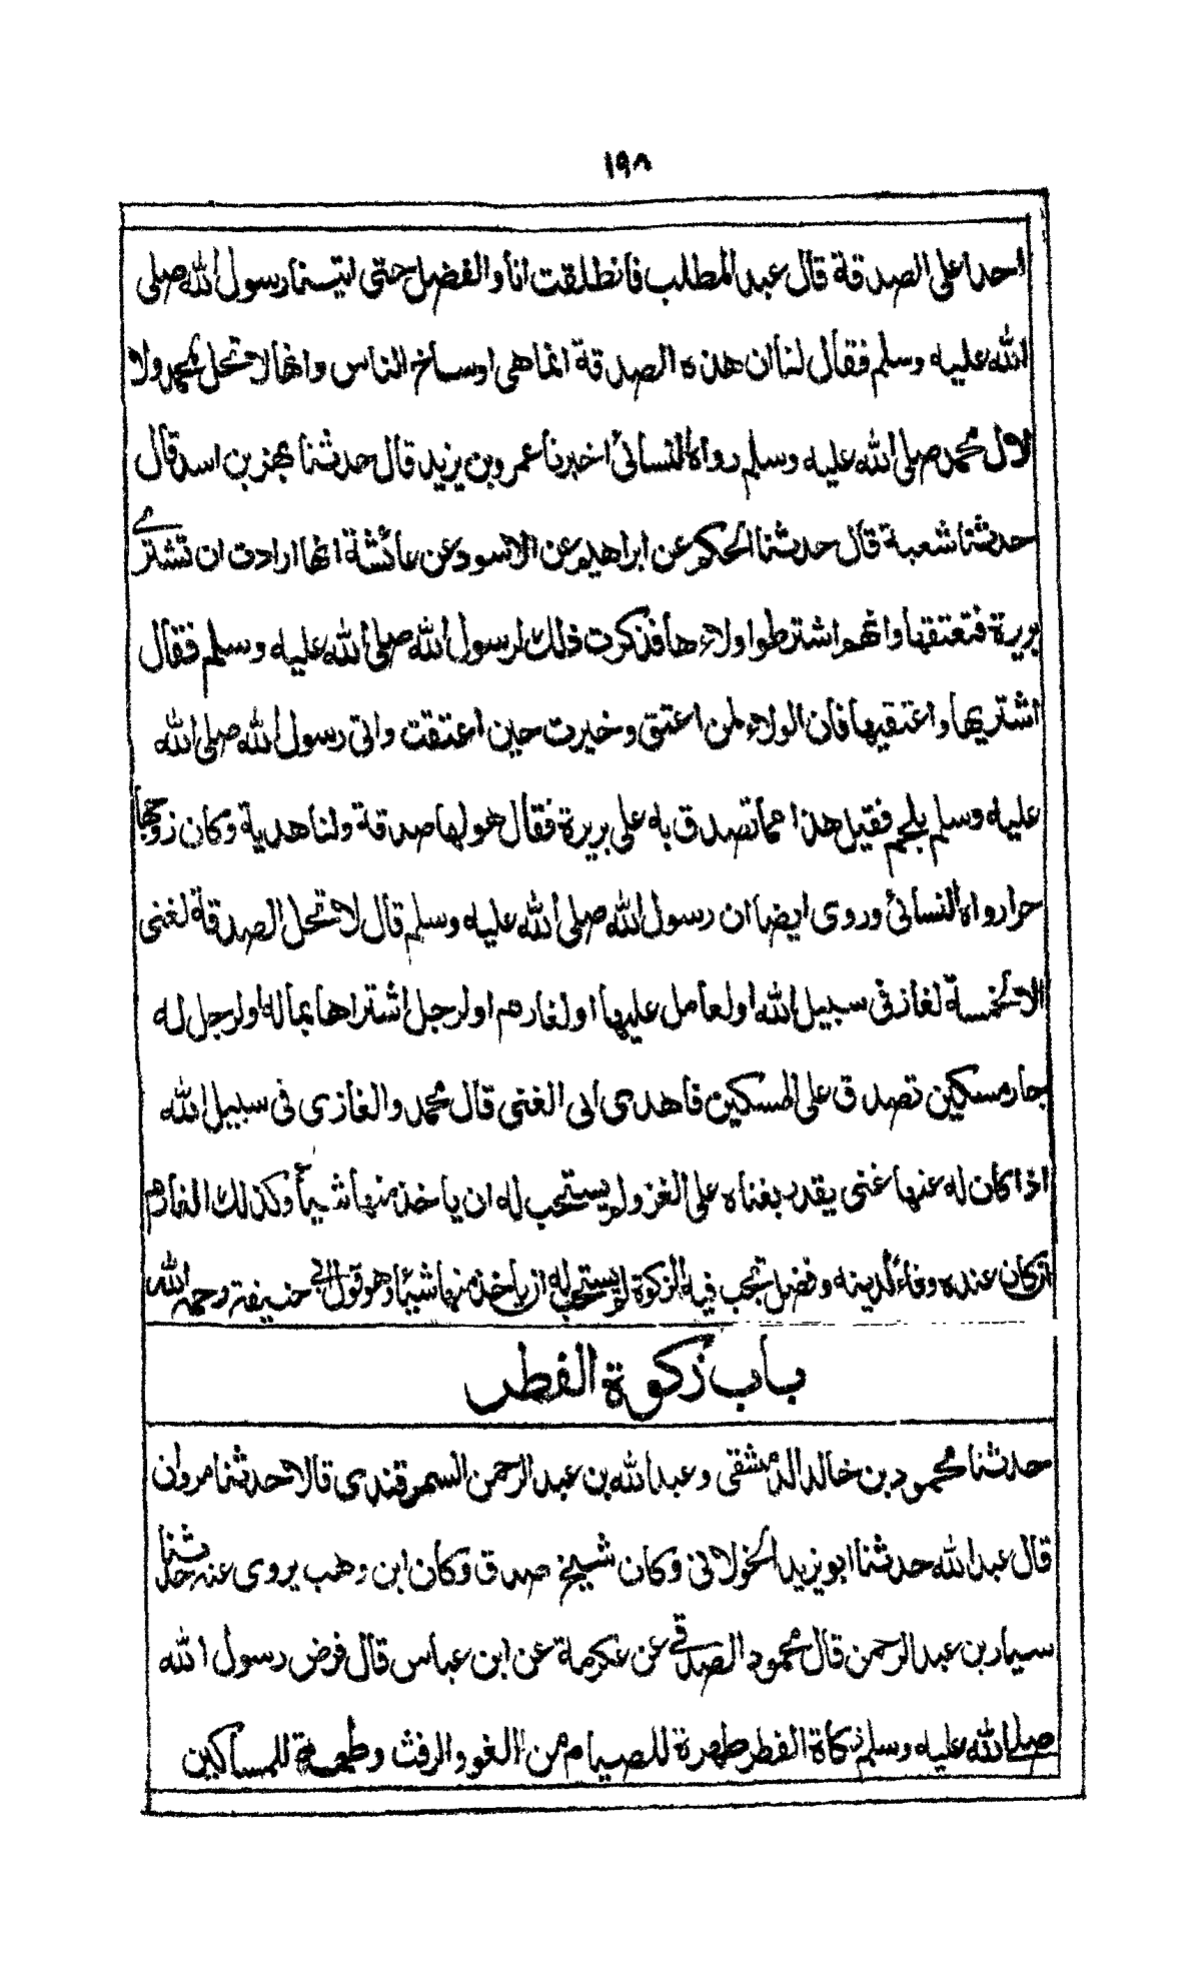 ١٩٨
احدا على الصدقة قال عبد المطلب فانطلقت انا والفضل حتى اتيسنا رسول الله صلى
الله عليه وسلم فقال لنا ان هذه الصدقة انما هى اوساخ الناس وانها لا تحل لمحمد ولا
لال محمد صلى الله عليه وسلم رواه النسائى اخبرنا عمرو بن يزيد قال حدثنا بهز بن اسد قال
حدثنا شعبة قال حدثنا الحكم عن ابراهيم عن الاسود عن عائشة انها ارادت ان تشترے
بريرة فتعتقها وانهم اشترطوا ولاءها فذكرت ذلك لرسول الله صلى الله عليه وسلم فقال
اشتريها واعتقيها فان الولاء لمن اعتق وخيرت حين اعتقت واتى رسول الله صلى الله
عليه وسلم بلحم فقيل هذا مما تصدق به على بريرة فقال هو لها صدقة ولنا هدية وكان زوجها
حرا رواه النسائى وروى ايضا ان رسول الله صلى الله عليه وسلم قال لا تحل الصدقة لغنى
الا لخمسة لغاز فى سبيل الله او لعامل عليها او لغارم او لرجل اشتراها بماله او لرجل له
جار مسكين تصدق على المسكين فاهدى الى الغنى قال محمد والغازى فى سبيل الله
اذا كان له عنها غنى يقدر بغناه على الغزو لم يستحب له ان ياخذ منها شيأ وكذلك الغارم
ان كان عنده وفاء لدينه وفضل تجب فيه الزكوة لم يستحب له ان ياخذ منها شيئا وهو قول ابى حنيفة رحمه الله
باب زكوة الفطر
حدثنا محمود بن خالد الدمشقى وعبد الله بن عبد الرحمن السمرقندى قالا حدثنا مروان
قال عبد الله حدثنا ابو يزيد الخولانى وكان شيخ صدق وكان ابن وهب يروى عنه حدثنا
سيار بن عبد الرحمن قال محمود الصدقے عن عكرمة عن ابن عباس قال فرض رسول الله
صلے الله عليه وسلم زكاة الفطر طهرة للصيام من اللغو والرفث وطعمة للمساكين